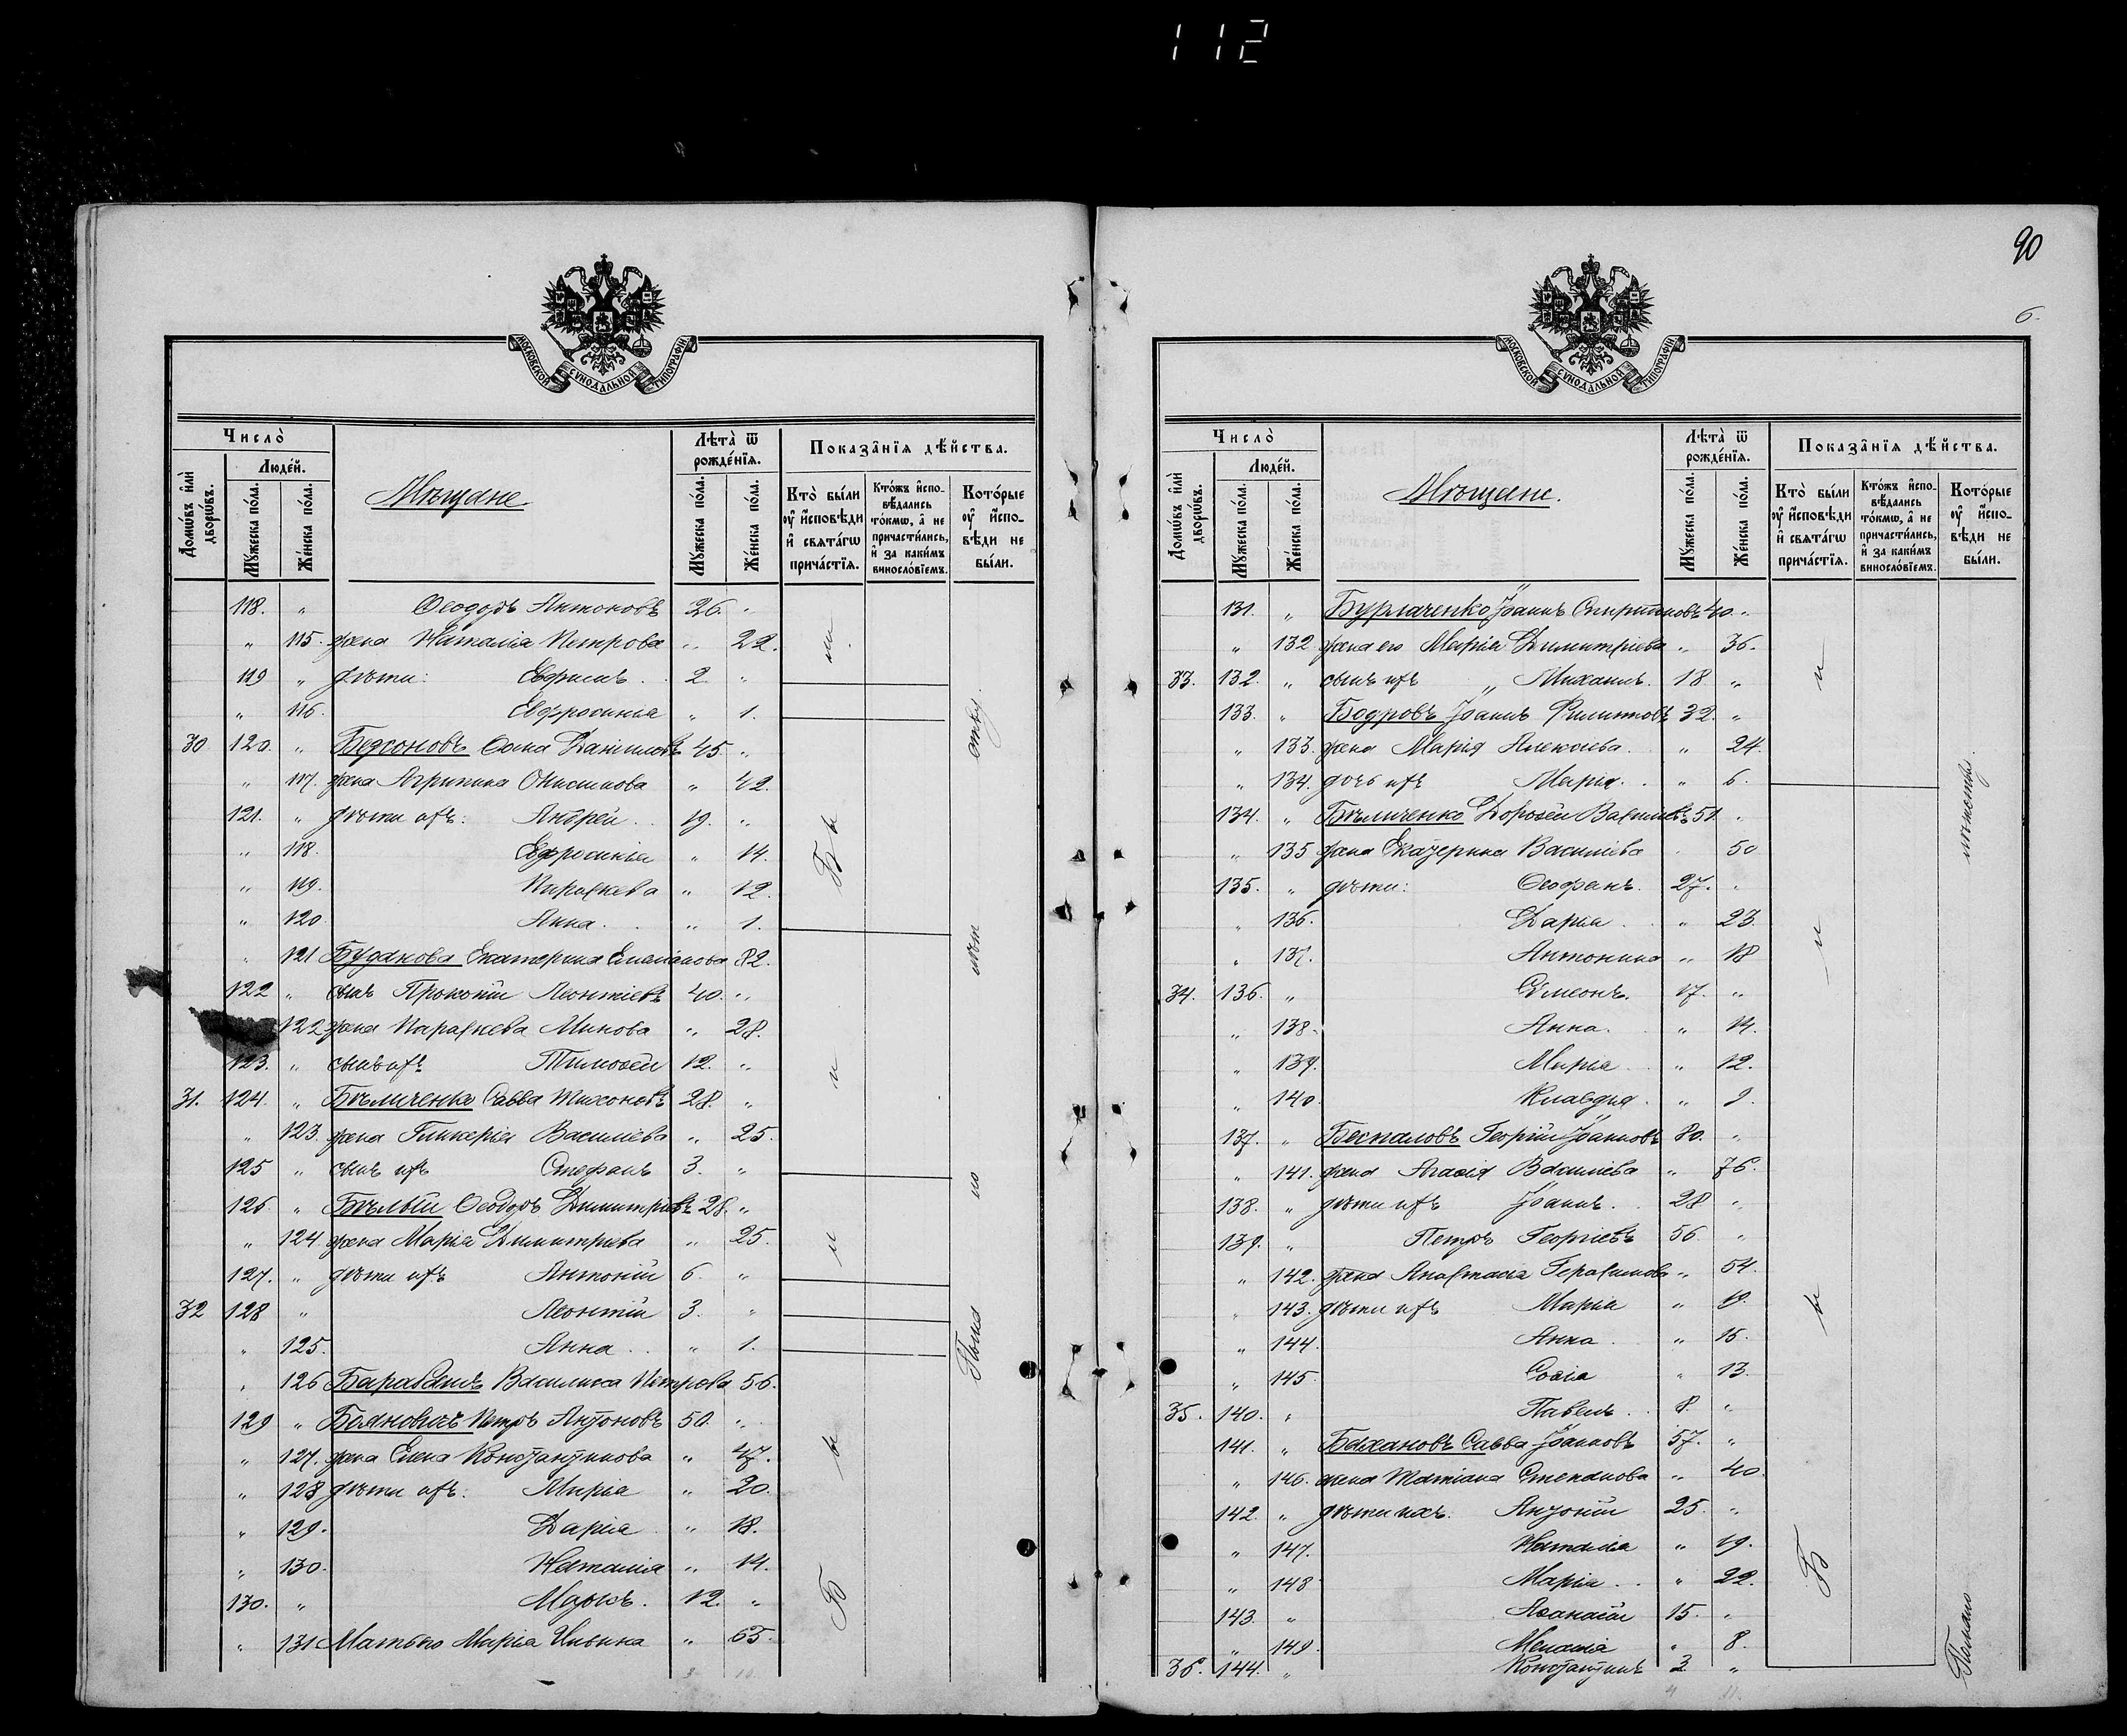 112
МОСКОВСКОЙ СѴНОДАЛЬНОЙ ТИПОГРАФІИ
Число̀
Люде́й.
Домѡ́въ и҆лѝ дворѡ́въ.
Мꙋ́жеска по́ла.
Же́нска по́ла.
Мѣщане
Лѣта̀ ѿ рожде́нїѧ.
Мꙋ́жеска по́ла.
Же́нска по́ла.
Показа̑нїѧ дѣ́йства.
Кто̀ бы́ли ѹ҆ и҆сповѣ́ди и҆ свѧта́гѡ прича́стїѧ.
Кто́жъ и҆спо-вѣ́дались то́кмѡ, а҆ не причасти́лись, и҆ за каки́мъ винословїемъ.
Кото́рые ѹ҆ и҆спо-вѣ́ди не бы́ли.
118. " Ѳеодоръ Антоновъ 26. "
" 115. жена Наталія Петрова " 22.
119 " дѣти: Ефремъ 2 "
" 116. Евфросинія " 1.
30 120. " Бедсоновъ Ѳома Даніиловъ 45. "
" 117. жена Агрипина Онисимова " 42.
121. " дѣти ихъ: Андрей 19. "
" 118. Евфросинія " 14.
" 119. Параскева " 12.
" 120 Анна " 1.
" 121 Буданова Екатерина Емеліанова 82.
122 " сынъ Прокопій Леонтіевъ 40. "
122 жена Параскева Минова " 28.
123. " сынъ ихъ Тимоѳей 12. "
31. 124. " Бѣличенко Савва Тихоновъ 28. "
" 123. жена Гликерія Василіева " 25.
125 " сынъ ихъ Стефанъ 3. "
126. " Бѣлый Ѳеодоръ Димитріевъ 28. "
" 124 жена Марія Димитріева " 25.
127. " дѣти ихъ Антоній 6. "
32 128 " Леонтій 3. "
" 125. Анна " 1.
" 126 Барабашъ Василиса Петрова 56.
129 " Бояновичъ Петръ Антоновъ 50. "
" 127. жена Елена Константинова " 47.
" 128 дѣти ихъ: Марія " 20.
" 129. Дарія " 18.
" 130. Наталія " 14.
130. " Маркъ. 12. "
" 131 Матько Марія Ильина " 65.
Б ы
л и
и
Б ы
По ма
ло
лѣт
ству.
90
6.
МОСКОВСКОЙ СѴНОДАЛЬНОЙ ТИПОГРАФІИ
Число̀
Люде́й.
Домѡ́въ и҆лѝ дворѡ́въ.
Мꙋ́жеска по́ла.
Же́нска по́ла.
Мѣщане.
Лѣта̀ ѿ рожде́нїѧ.
Мꙋ́жеска по́ла.
Же́нска по́ла.
Показа̑нїѧ дѣ́йства.
Кто̀ бы́ли ѹ҆ и҆сповѣ́ди и҆ свѧта́гѡ прича́стїѧ.
Кто́жъ и҆спо-вѣ́дались то́кмѡ, а҆ не причасти́лись, и҆ за каки́мъ винословїемъ.
Кото́рые ѹ҆ и҆спо-вѣ́ди не бы́ли.
131. " Бурлаченко Іоаннъ Спиридоновъ 40. "
" 132 жена его Марія Димитріева " 36.
33. 132. " сынъ ихъ " Михаилъ. 18 "
133. " Бодровъ Іоаннъ Филиповъ 32. "
" 133. жена Марія Алексіева. " 24.
" 134. дочь ихъ Марія. " 6.
134. " Бѣличенко Дороѳей Василіевъ 51. "
" 135 жена Екатерина Василіева 50
135. " дѣти: Ѳеофанъ. 27. "
" 136. Дарія " 23.
" 137. Антонина " 18
34. 136. " Сѵмеонъ. 17. "
" 138. Анна. " 14.
" 139. Марія " 12.
" 140. Клавдія. " 9.
137. " Беспаловъ Георгій Іоанновъ 80. "
" 141. жена Агаѳія Василіева " 76.
138. " дѣти ихъ Іоаннъ. 28 "
139. " Петръ Георгіевъ 56. "
" 142. жена Анастасія Герасимова " 54.
" 143. дѣти ихъ Марія " 19.
" 144. Анна. " 15.
" 145. Софія " 13.
35. 140. " Павелъ. 8. "
141. " Бахановъ Савва Іоанновъ 57. "
" 146. жена Татіана Степанова " 40.
142. " дѣти ихъ. Антоній 25. "
" 147. Наталія " 19.
" 148 Марія " 22.
143. " Аѳанасій 15. "
" 149. Меланія " 8.
36. 144. " Константинъ 3 "
Б ы л и
По мало
лѣтству.